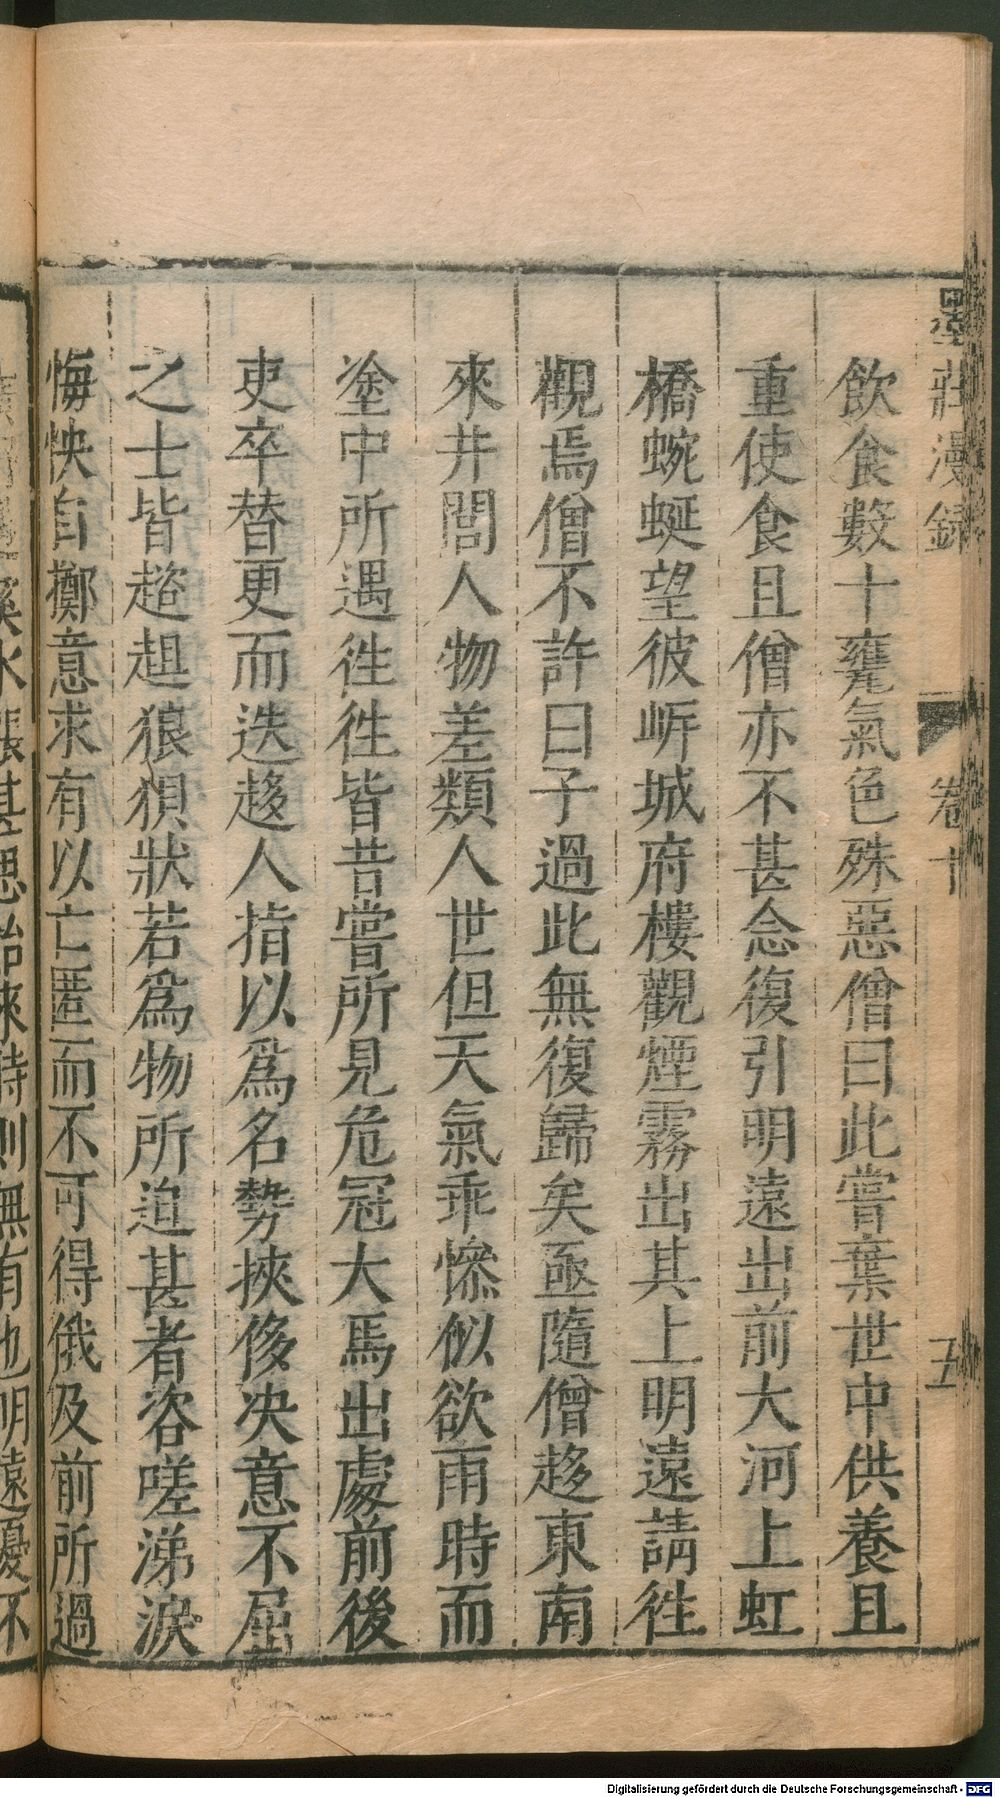 墨莊漫録
卷十
五
飲食數十甕氣色殊惡僧曰此嘗棄世中供養且
重使食且僧亦不甚念復引明遠出前大河上虹
橋蜿蜒望彼岍城府樓觀煙霧出其上明遠請徃
觀焉僧不許曰子過此無復歸矣亟隨僧趍東南
來井閭人物差類人世但天氣乖慘似欲雨時而
塗中所遇徃徃皆昔嘗所見危冠大馬出處前後
吏卒替更而迭趍人指以為名勢挾侈决意不屈
之士皆趦趄狼狽狀若為物所迫甚者咨嗟涕淚
悔怏自擲意求有以亡匿而不可得俄及前所過
溪水漲甚思始來時則無有也明遠憂不
Digitalisierung gefördert durch die Deutsche Forschungsgemeinschaft - DFG